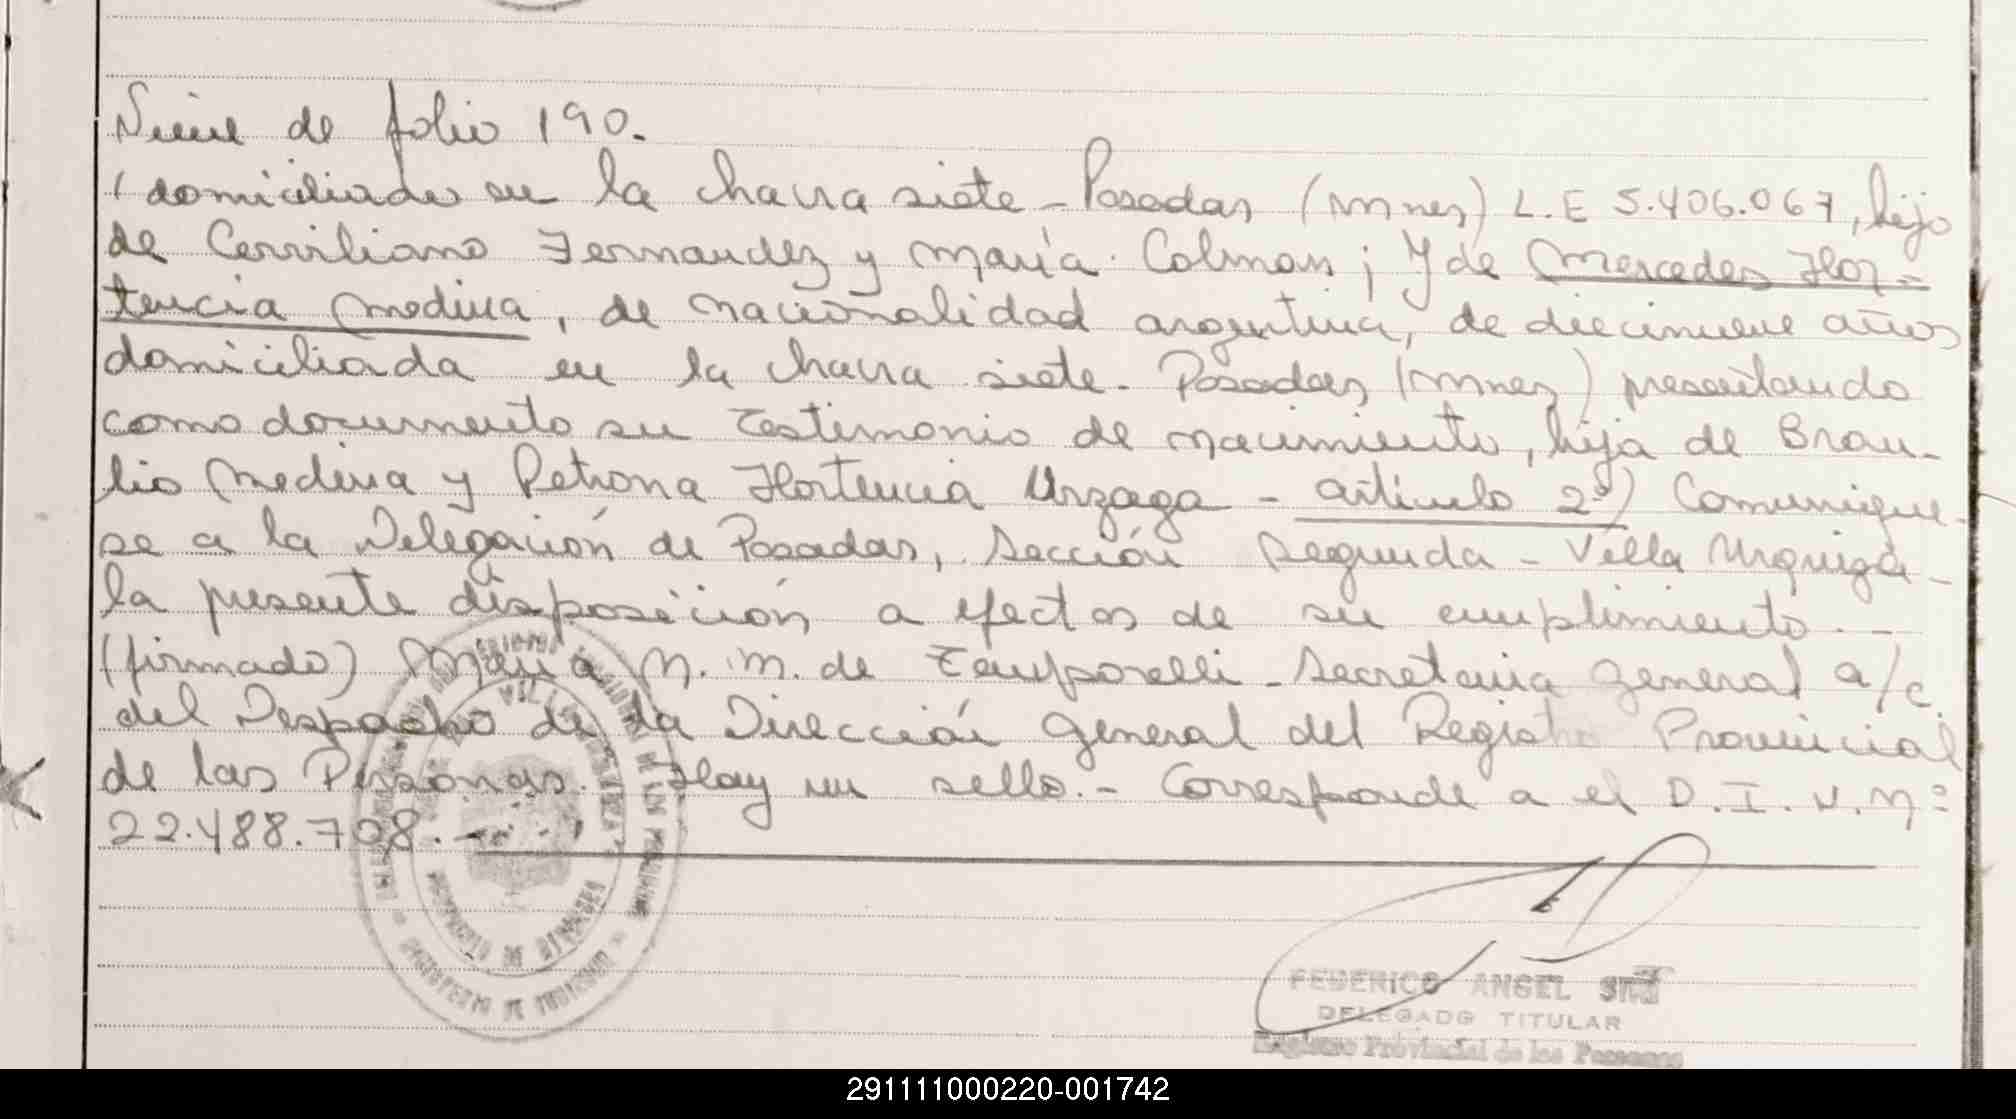 Viene de folio 190.
domiciliado en la chacra siete - Posadas (Mnes) L.E 5.406.067, hijo
de Cerviliano Fernandez y María Colman; Y de Mercedes Hor-
tencia Medina, de nacionalidad argentina, de diecinueve años
domiciliada en la chacra siete. Posadas (Mnes) presentando
como documento su testimonio de nacimiento, hija de Brau-
lio Medina y Petrona Hortencia Urzaga - artículo 2º) Comunique-
se a la Delegación de Posadas, Sección Segunda - Villa Urquiza -
la presente disposición a efectos de su cumplimiento. -
(firmado) María N. M. de Temporelli - Secretaria General a/c.
del Despacho de la Dirección General del Registro Provincial
de las Personas. Hay un sello. - Corresponde a el D.I.U.Nº
22.488.708. -
FEDERICO ANGEL
DELEGADO TITULAR
Registro Provincial de las Personas
291111000220-001742